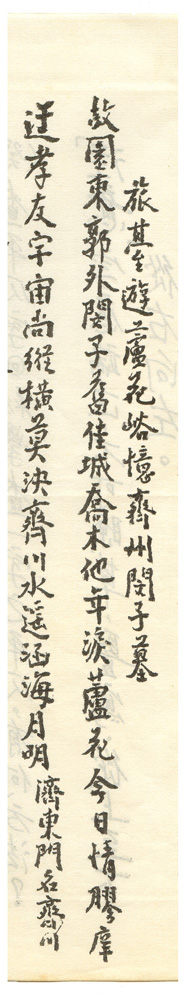 旅基遊蘆花峪憶齊州閔子墓
故園東郭外閔子舊佳城喬木他年淚蘆花今日情膠庠
迋孝友宇宙尚縱橫莫決齊川水遥涵海月明 濟東門名齊川